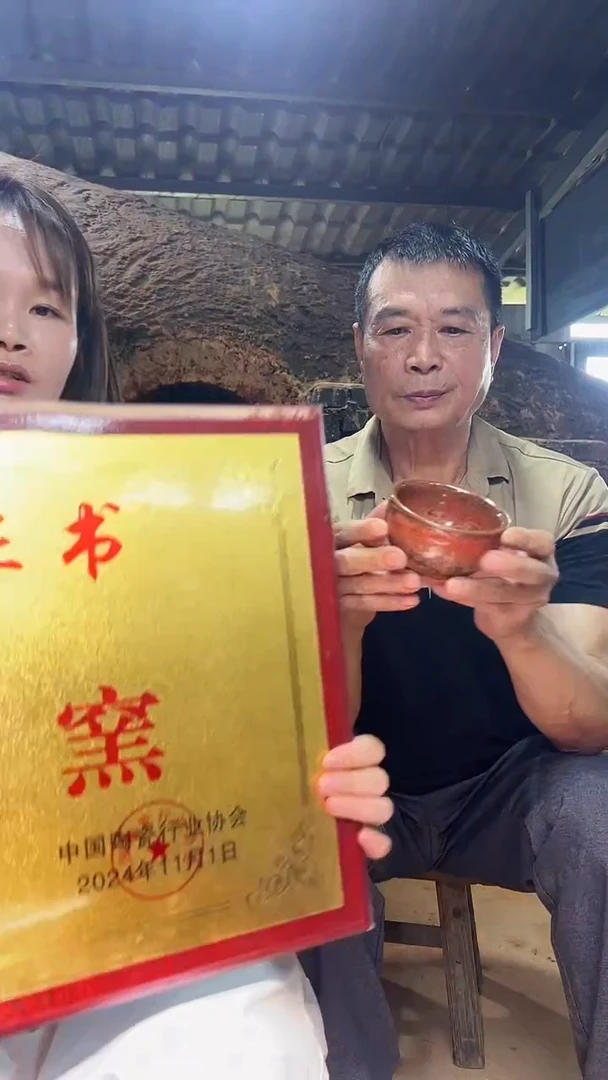 书
窑
中国陶瓷行业协会
2024年11月1日